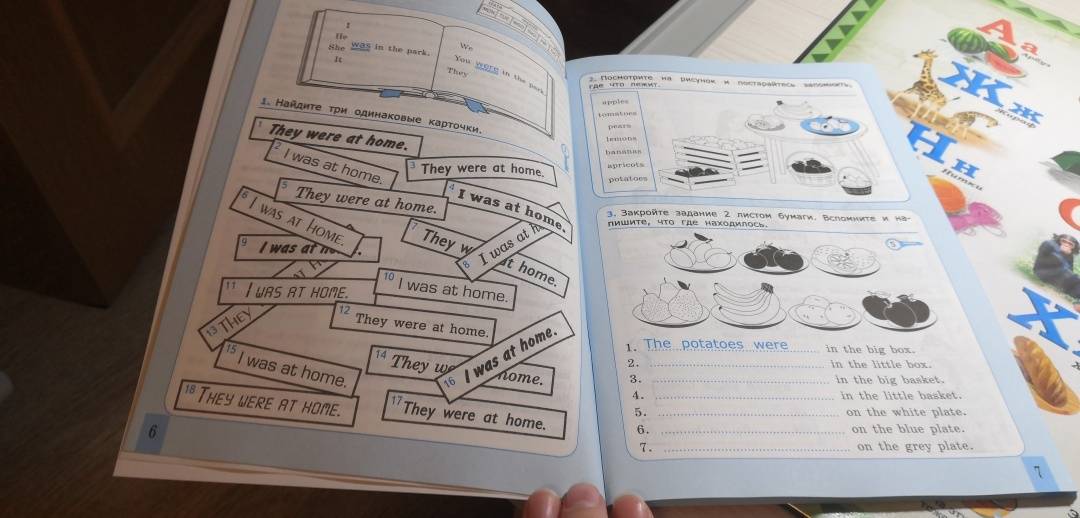 I
He
She was in the park.
It
We
You were in the park.
They
1. Найдите три одинаковые карточки.
1 They were at home.
2 I was at home.
3 They were at home.
4 I was at home.
5 They were at home.
6 I WAS AT HOME.
7 They w at home.
8 I was at
9 I was at
10 I was at home.
11 I WAS AT HOME.
12 They were at home.
13 THEY AT
14 They we home.
15 I was at home.
16 I was at home.
17 They were at home.
18 THEY WERE AT HOME.
6
2. Посмотрите на рисунок и постарайтесь запомнить,
где что лежит.
apples
tomatoes
pears
lemons
bananas
apricots
potatoes
3. Закройте задание 2 листом бумаги. Вспомните и на-
пишите, что где находилось.
5
1. The potatoes were in the big box.
2. in the little box.
3. in the big basket.
4. in the little basket.
5. on the white plate.
6. on the blue plate.
7. on the grey plate.
7
А а
Арбуз
Ж ж
Жираф
Н н
Нитки
Х